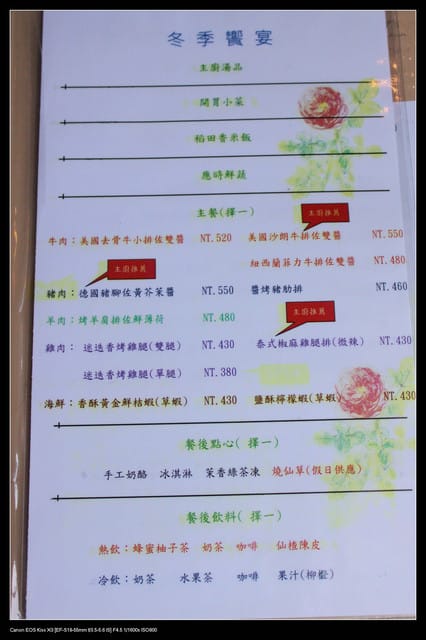 冬季饗宴
主廚湯品
開胃小菜
稻田香米飯
應時鮮蔬
主餐(擇一)
主廚推薦
牛肉：美國去骨牛小排佐雙醬 NT.520 美國沙朗牛排佐雙醬 NT.550
紐西蘭菲力牛排佐雙醬 NT.480
主廚推薦
豬肉：德國豬腳佐黃芥茉醬 NT.550 醬烤豬肋排 NT.460
主廚推薦
羊肉：烤羊肩排佐鮮薄荷 NT.480
雞肉： 迷迭香烤雞腿(雙腿) NT.430 泰式椒麻雞腿排(微辣) NT.430
迷迭香烤雞腿(單腿) NT.380
海鮮：香酥黃金鮮桔蝦(草蝦) NT.430 鹽酥檸檬蝦(草蝦) NT.430
餐後點心( 擇一)
手工奶酪 冰淇淋 茉香綠茶凍 燒仙草(假日供應)
餐後飲料( 擇一)
熱飲：蜂蜜柚子茶 奶茶 咖啡 仙楂陳皮
冷飲：奶茶 水果茶 咖啡 果汁(柳橙)
Canon EOS Kiss X3 [EF-S18-55mm f/3.5-5.6 IS] F4.5 1/1600s ISO800